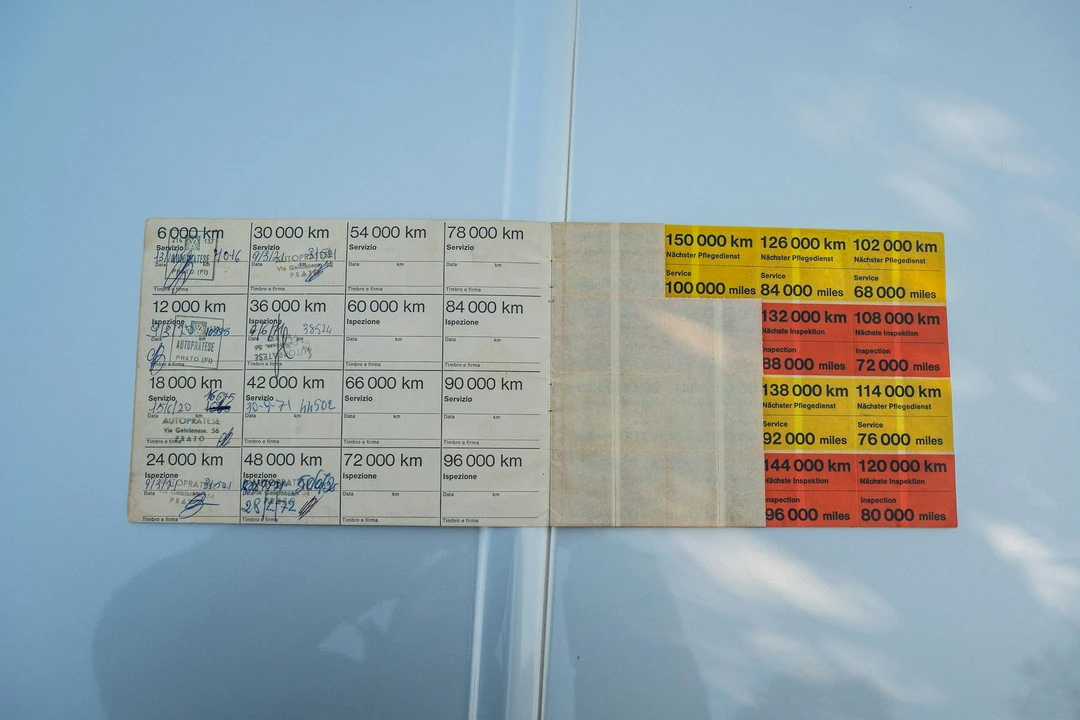 6 000 km
Servizio
Data km
AUTOPRATESE
PRATO (FI)
Timbro e firma
12 000 km
Ispezione
AUTOPRATESE
PRATO (FI)
Timbro e firma
18 000 km
Servizio
15/6/20
Data km
AUTOPRATESE
Via Galcianese, 56
PRATO
Timbro e firma
24 000 km
Ispezione
Data km
Timbro e firma
30 000 km
Servizio
9/3/21
Data km
AUTOPRATESE
Via Galcianese, 56
PRATO
Timbro e firma
36 000 km
Ispezione
38524
AUTOPRATESE
Timbro e firma
42 000 km
Servizio
30-9-71 44902
Data km
Timbro e firma
48 000 km
Ispezione
28/2/72
Timbro e firma
54 000 km
Servizio
Data km
Timbro e firma
60 000 km
Ispezione
Data km
Timbro e firma
66 000 km
Servizio
Data km
Timbro e firma
72 000 km
Ispezione
Data km
Timbro e firma
78 000 km
Servizio
Data km
Timbro e firma
84 000 km
Ispezione
Data km
Timbro e firma
90 000 km
Servizio
Data km
Timbro e firma
96 000 km
Ispezione
Data km
Timbro e firma
150 000 km
Nächster Pflegedienst
Service
100 000 miles
126 000 km
Nächster Pflegedienst
Service
84 000 miles
102 000 km
Nächster Pflegedienst
Service
68 000 miles
132 000 km
Nächste Inspektion
Inspection
88 000 miles
108 000 km
Nächste Inspektion
Inspection
72 000 miles
138 000 km
Nächster Pflegedienst
Service
92 000 miles
114 000 km
Nächster Pflegedienst
Service
76 000 miles
144 000 km
Nächste Inspektion
Inspection
96 000 miles
120 000 km
Nächste Inspektion
Inspection
80 000 miles